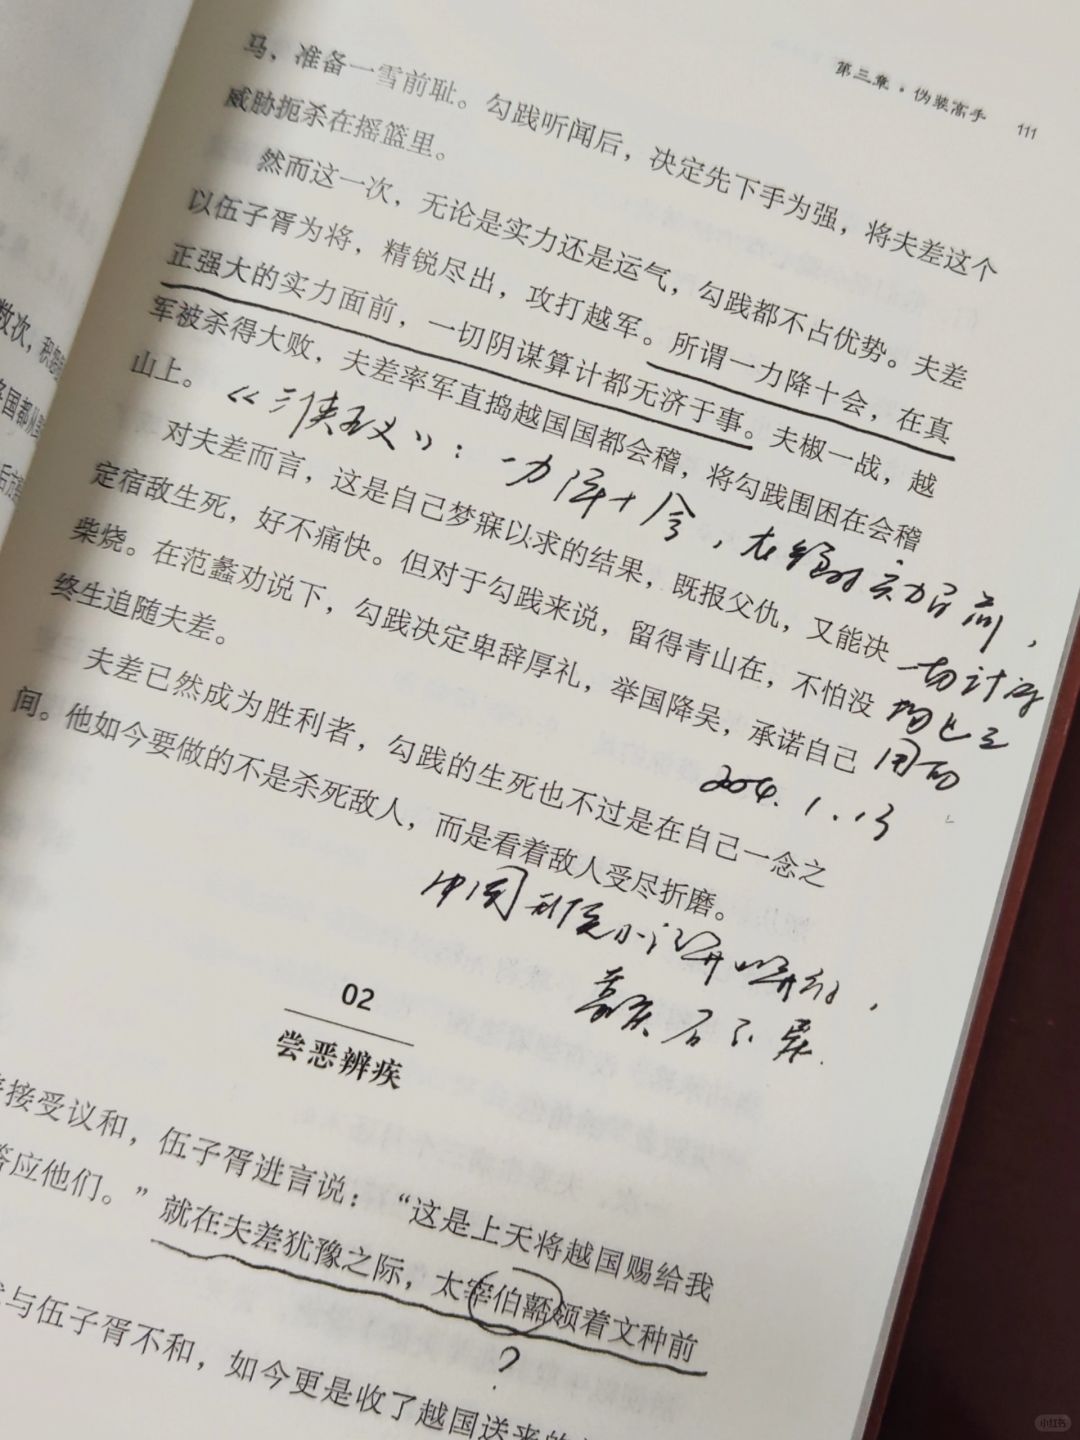 第三章·伪装高手 111
马，准备一雪前耻。勾践听闻后，决定先下手为强，将夫差这个
威胁扼杀在摇篮里。
然而这一次，无论是实力还是运气，勾践都不占优势。夫差
以伍子胥为将，精锐尽出，攻打越军。所谓一力降十会，在真
正强大的实力面前，一切阴谋算计都无济于事。夫椒一战，越
军被杀得大败，夫差率军直捣越国国都会稽，将勾践围困在会稽
山上。
《三侠五义》：一力降十会，在绝对实力面前，
一切计谋
均是无
用的
对夫差而言，这是自己梦寐以求的结果，既报父仇，又能决
定宿敌生死，好不痛快。但对于勾践来说，留得青山在，不怕没
柴烧。在范蠡劝说下，勾践决定卑辞厚礼，举国降吴，承诺自己
终生追随夫差。
1.13
夫差已然成为胜利者，勾践的生死也不过是在自己一念之
间。他如今要做的不是杀死敌人，而是看着敌人受尽折磨。
中国
02
尝恶辨疾
接受议和，伍子胥进言说：“这是上天将越国赐给我
答应他们。”就在夫差犹豫之际，太宰伯嚭领着文种前
?
与伍子胥不和，如今更是收了越国送来的
数次，积
国都从
后
小红书